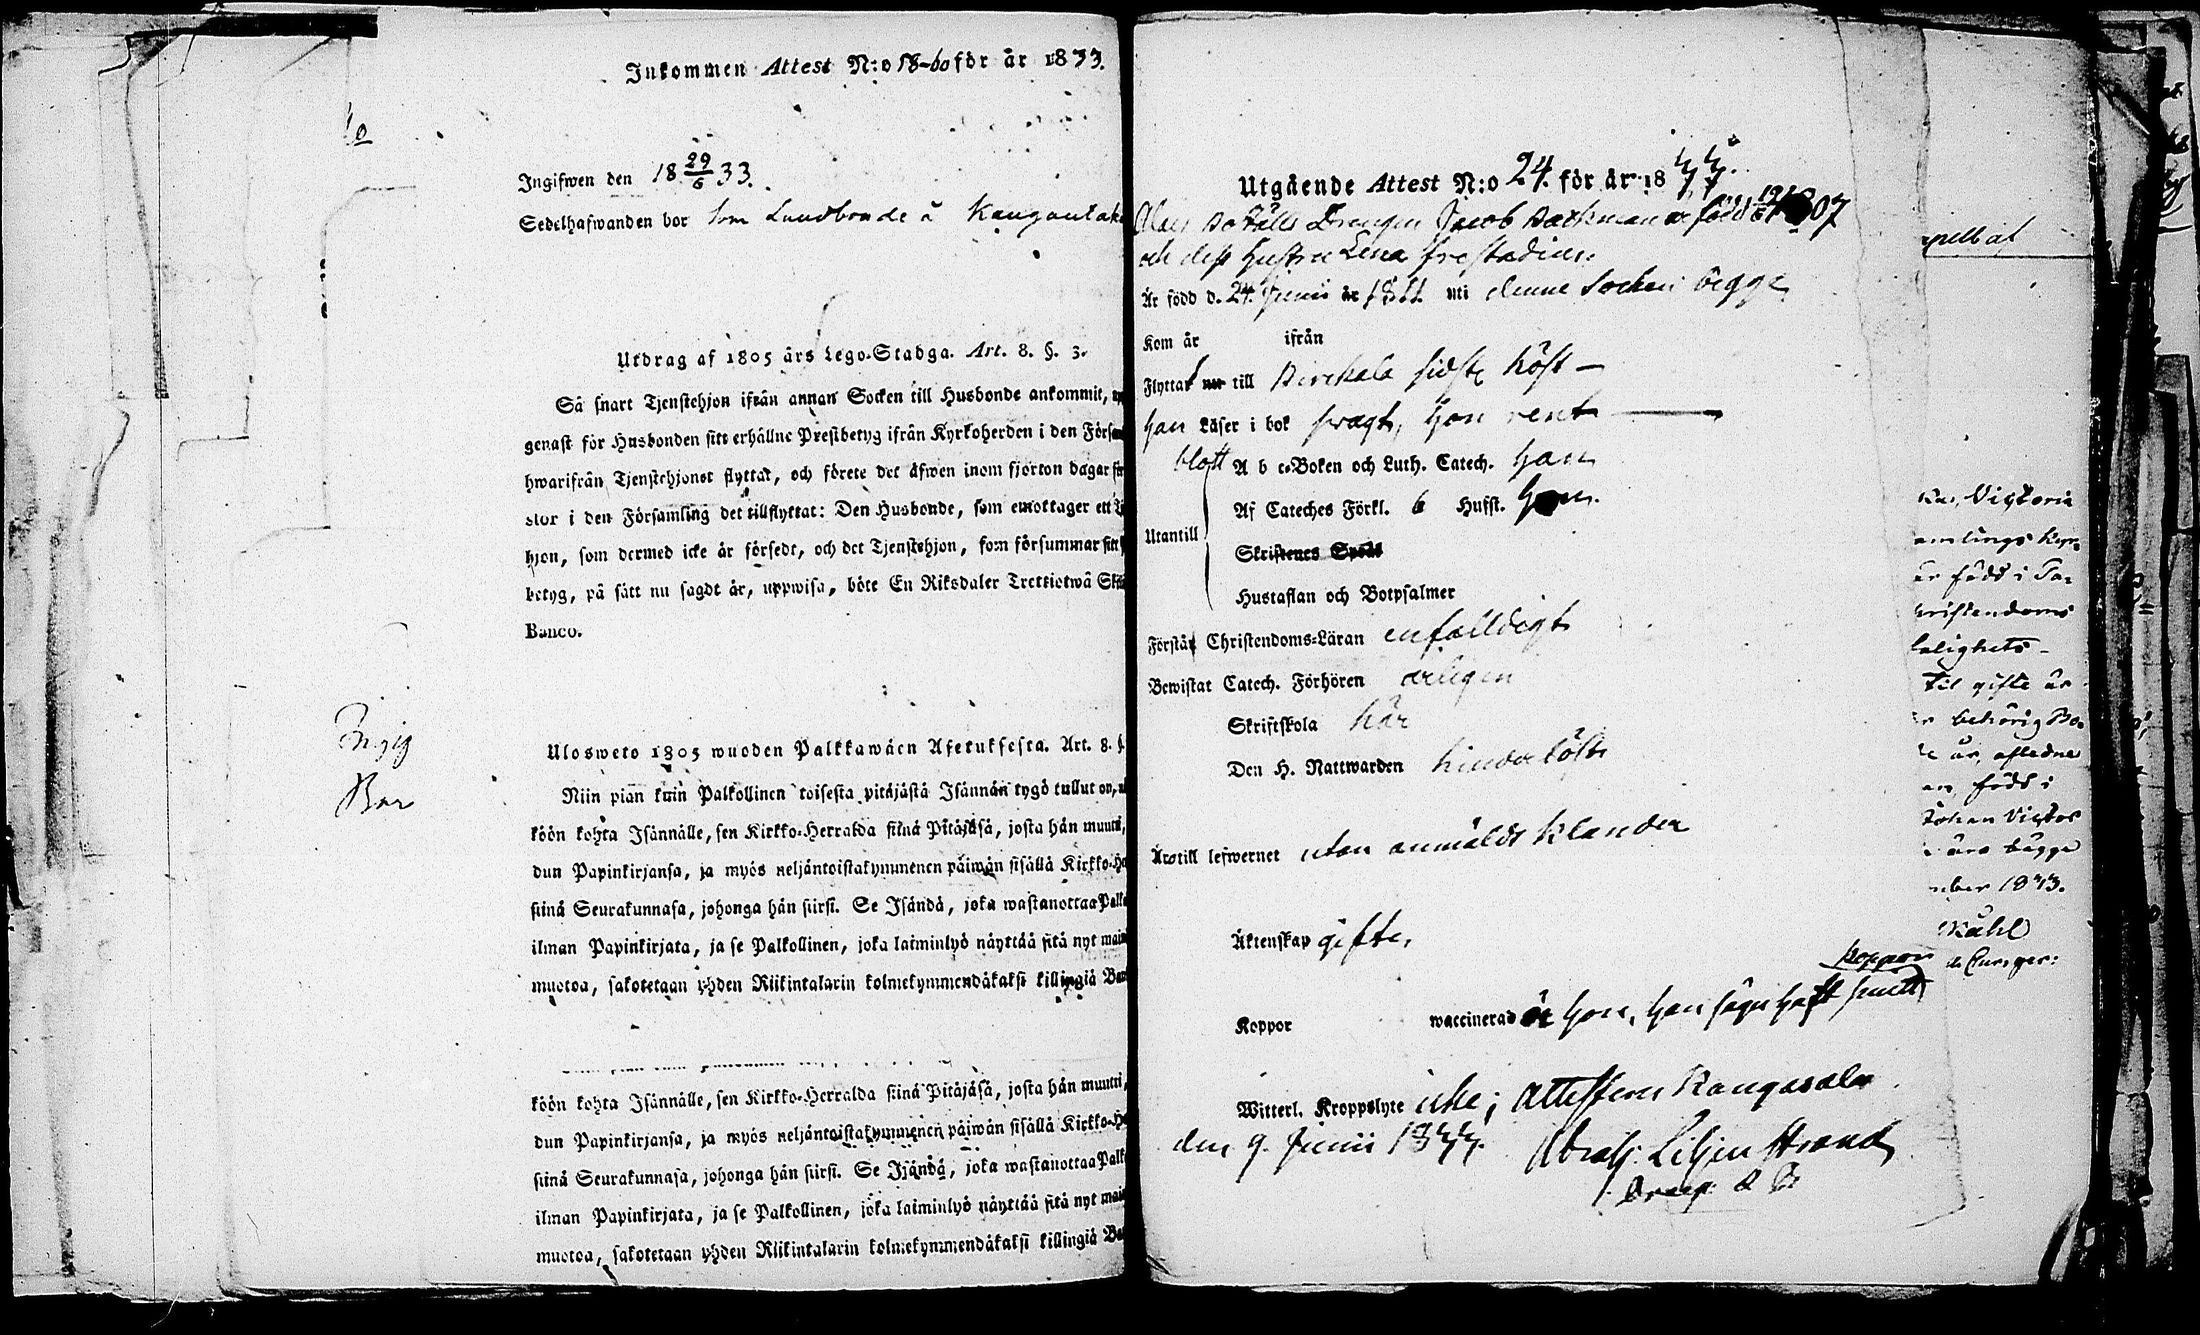 Inkommen Attest N:o 18-60 för år 1833.
Ingifwen den 18 29/6 33.
Sedelhafwanden bor som Landbonde å Kangantaka
Utdrag af 1805 års Lego-Stadga. Art. 8. §. 3.
Så snart Tjenstehjon ifrån annan Socken till Husbonde ankommit,
genast för Husbonden sitt erhållne Prestbetyg ifrån Kyrkoherden i den Försam
hwarifrån Tjenstehjonet flyttat, och förete det äfwen inom fjorton dagar för
stor i den Församling det tillflyttat: Den Husbonde, som emottager ett
hjon, som dermed icke är försedt, och det Tjenstehjon, som försummar sitt
betyg, på sätt nu sagdt är, uppwisa, böte En Riksdaler Trettiotwå Skil
Banco.
Ingif
Bor
Ulosweto 1805 wuoden Palkkawäen Asetuksesta. Art. 8. §.
Niin pian kuin Palkollinen toisesta pitäjästä Isännän tygö tullut on,
köön kohta Isännälle, sen Kirkko-Herralda siinä Pitäjäsä, josta hän muutti,
dun Papinkirjansa, ja myös neljäntoistakymmenen päiwän sisällä Kirkko-He
siinä Seurakunnasa, johonga hän siirsi. Se Isändä, joka wastanottaa Palko
ilman Papinkirjata, ja se Palkollinen, joka laiminlyö näyttää sitä nyt main
muotoa, sakotetaan yhden Riikintalarin kolmekymmendäkaksi killingiä Ban
köön kohta Isännälle, sen Kirkko-Herralda siinä Pitäjäsä, josta hän muutti,
dun Papinkirjansa, ja myös neljäntoistakymmenen päiwän sisällä Kirkko-He
siinä Seurakunnasa, johonga hän siirsi. Se Isändä, joka wastanottaa Palk
ilman Papinkirjata, ja se Palkollinen, joka laiminlyö näyttää sitä nyt main
muotoa, sakotetaan yhden Riikintalarin kolmekymmendäkaksi killingiä Ba
Utgående Attest N:o 24. för år 1844.
Drengen Jacob Backman född 1807
och dess hustru Lena
Är född d. 24. Junii år 1811 uti denne Socken begge
Kom år ifrån
Flyttat till Birckala sidste höst —
han Läser i bok swagt, hon rent —
blott A b c-Boken och Luth. Catech. han
Af Cateches Förkl. 6 Hufst. hon.
Utantill
Skriftenes Språk
Hustaflan och Botpsalmer
Förstår Christendoms-Läran enfalldigt
Bewistat Catech. Förhören årligen
Skriftskola här
Den H. Nattwarden hinderlöst
Är till lefwernet utan anmäldt klander
Äktenskap gifte.
koppor
Koppor waccinerad är hon, han säges haft
Witterl. Kroppslyte icke; Attesterar Kangasala
den 9. Junii 1844. Abrah. Liljenstrand
pell af
Victoria
amlings Kyr-
är född i Ta-
hristendoms
salighets-
til gifte är
behörig Bo-
är, aftedne
född i
Johan Victor
äro bägge
mber 1843.
Wåhl